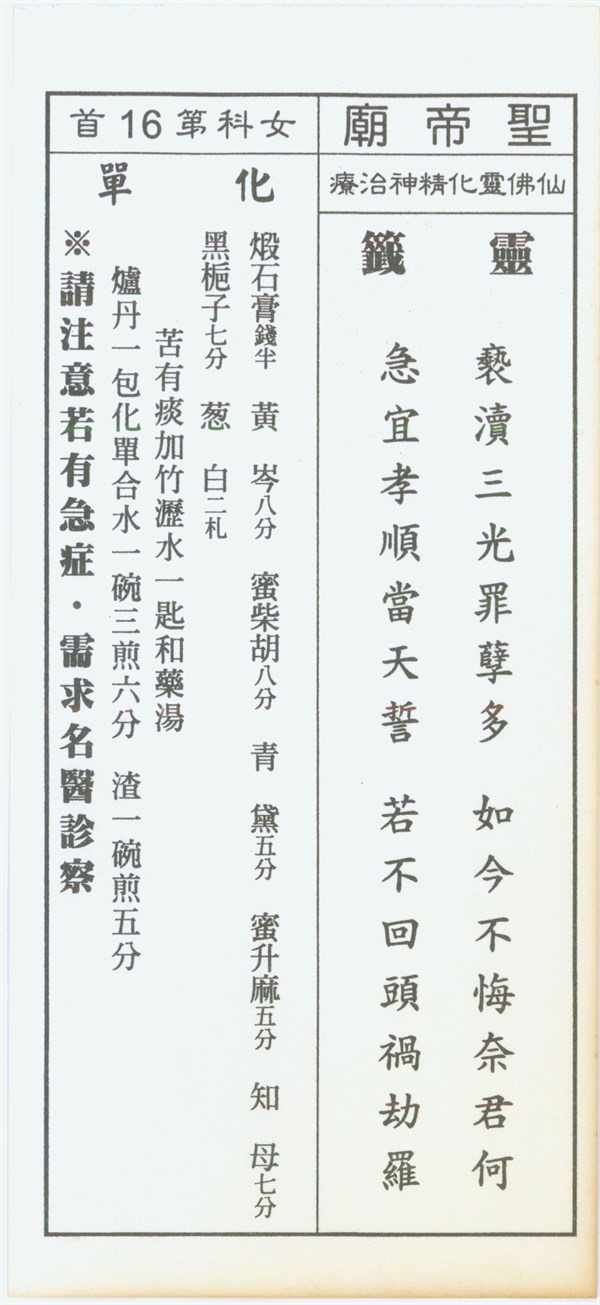 聖帝廟
仙佛靈化精神治療
靈籤
褻瀆三光罪孽多　如今不悔奈君何
急宜孝順當天誓　若不回頭禍劫羅
女科第16首
化單
煅石膏錢半　黃岑八分　蜜柴胡八分　青黛五分　蜜升麻五分　知母七分
黑梔子七分　葱白二札
苦有痰加竹瀝水一匙和藥湯
爐丹一包化單合水一碗三煎六分　渣一碗煎五分
※請注意若有急症．需求名醫診察